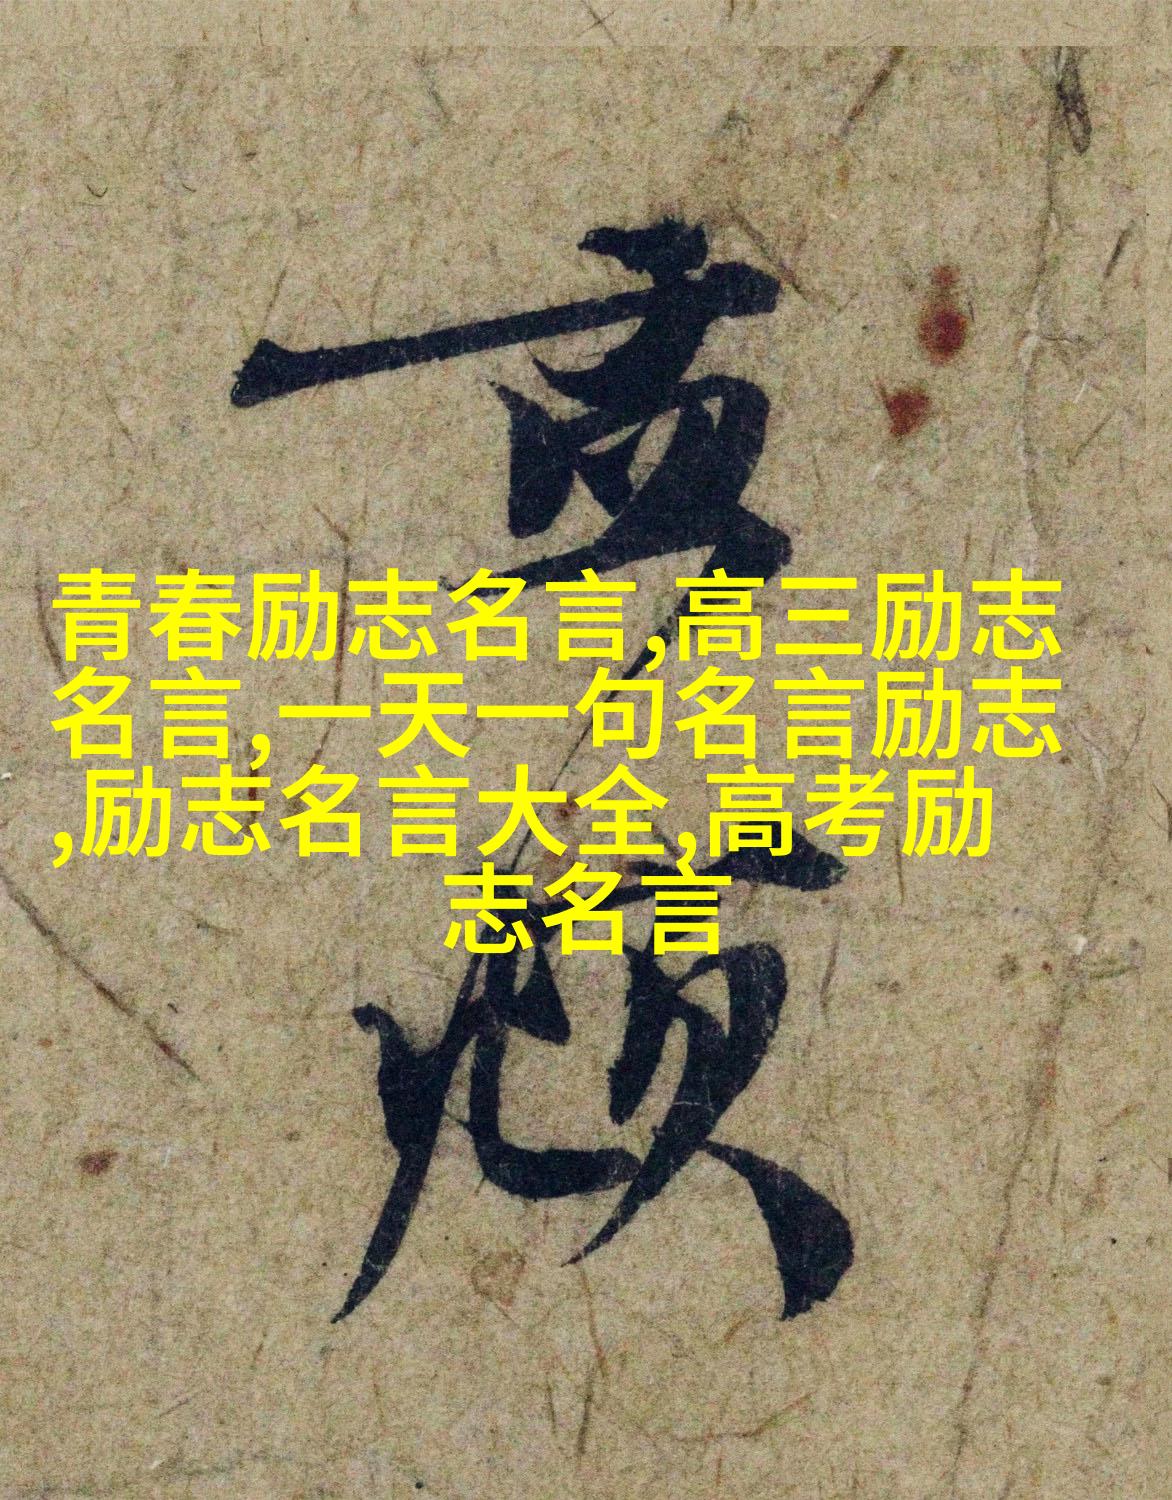 青春励志名言,高三励志
名言, 一天一句名言励志
,励志名言大全,高考励
志名言